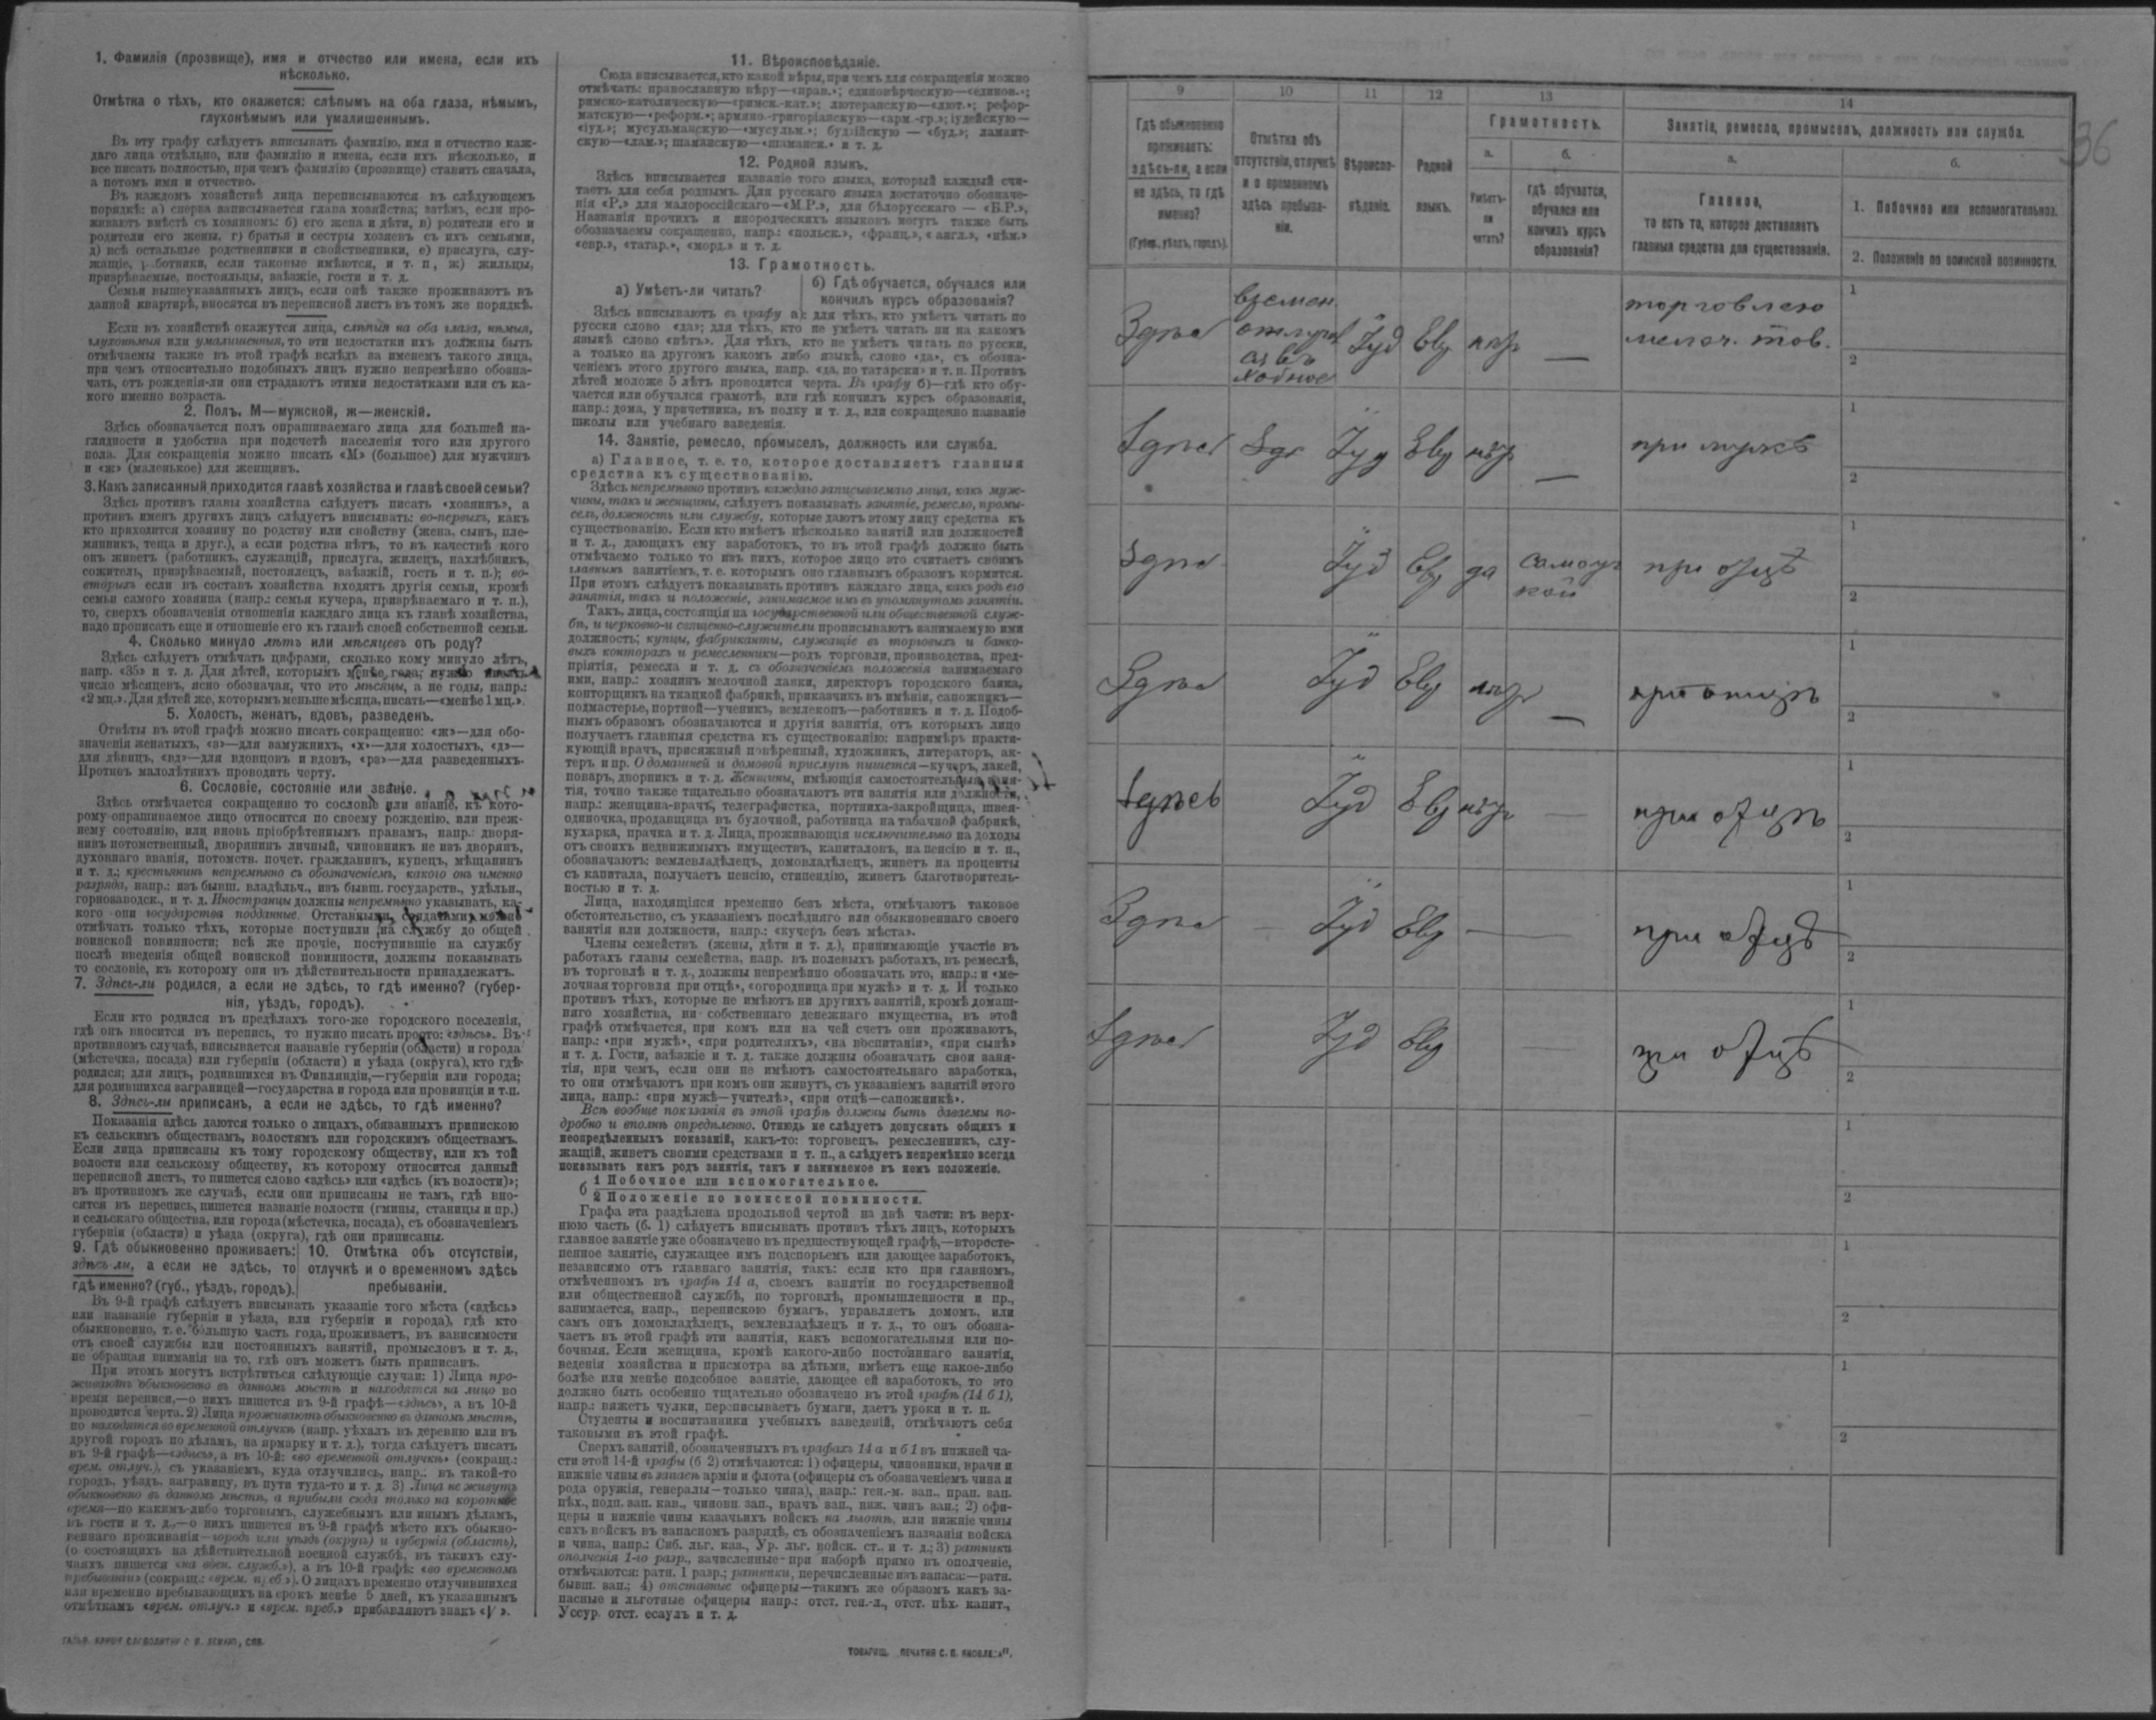 1. Фамилія (прозвище), имя и отчество или имена, если ихъ
нѣсколько.
Отмѣтка о тѣхъ, кто окажется: слѣпымъ на оба глаза, нѣмымъ,
глухонѣмымъ или умалишеннымъ.
Въ эту графу слѣдуетъ вписывать фамилію, имя и отчество каж-
даго лица отдѣльно, или фамилію и имена, если ихъ нѣсколько, и
все писать полностью, при чемъ фамилію (прозвище) ставить сначала,
а потомъ имя и отчество.
Въ каждомъ хозяйствѣ лица переписываются въ слѣдующемъ
порядкѣ: а) сперва записывается глава хозяйства; затѣмъ, если про-
живаютъ вмѣстѣ съ хозяиномъ: б) его жена и дѣти, в) родители его и
родители его жены, г) братья и сестры хозяевъ съ ихъ семьями,
д) всѣ остальные родственники и свойственники, е) прислуга, слу-
жащіе, работники, если таковые имѣются, и т. п., ж) жильцы,
призрѣваемые, постояльцы, заѣзжіе, гости и т. д.
Семьи вышеуказанныхъ лицъ, если онѣ также проживаютъ въ
данной квартирѣ, вносятся въ переписной листъ въ томъ же порядкѣ.
Если въ хозяйствѣ окажутся лица, слѣпыя на оба глаза, нѣмыя,
глухонѣмыя или умалишенныя, то эти недостатки ихъ должны быть
отмѣчаемы также въ этой графѣ вслѣдъ за именемъ такого лица,
при чемъ относительно подобныхъ лицъ нужно непремѣнно обозна-
чать, отъ рожденія-ли они страдаютъ этими недостатками или съ ка-
кого именно возраста.
2. Полъ. М—мужской, ж—женскій.
Здѣсь обозначается полъ опрашиваемаго лица для большей на-
глядности и удобства при подсчетѣ населенія того или другого
пола. Для сокращенія можно писать «М» (большое) для мужчинъ
и «ж» (маленькое) для женщинъ.
3. Какъ записанный приходится главѣ хозяйства и главѣ своей семьи?
Здѣсь противъ главы хозяйства слѣдуетъ писать «хозяинъ», а
противъ именъ другихъ лицъ слѣдуетъ вписывать: во-первыхъ, какъ
кто приходится хозяину по родству или свойству (жена, сынъ, пле-
мянникъ, теща и друг.), а если родства нѣтъ, то въ качествѣ кого
онъ живетъ (работникъ, служащій, прислуга, жилецъ, нахлѣбникъ,
сожитель, призрѣваемый, постоялецъ, заѣзжій, гость и т. п.); во-
вторыхъ если въ составъ хозяйства входятъ другія семьи, кромѣ
семьи самого хозяина (напр.: семья кучера, призрѣваемаго и т. п.),
то, сверхъ обозначенія отношенія каждаго лица къ главѣ хозяйства,
надо прописать еще и отношеніе его къ главѣ своей собственной семьи.
4. Сколько минуло лѣтъ или мѣсяцевъ отъ роду?
Здѣсь слѣдуетъ отмѣчать цифрами, сколько кому минуло лѣтъ,
напр. «35» и т. д. Для дѣтей, которымъ менѣе года, нужно
число мѣсяцевъ, ясно обозначая, что это мѣсяцы, а не годы, напр.:
«2 мц.». Для дѣтей же, которымъ меньше мѣсяца, писать—«менѣе 1 мц.».
5. Холостъ, женатъ, вдовъ, разведенъ.
Отвѣты въ этой графѣ можно писать сокращенно: «ж»—для обо-
значенія женатыхъ, «з»—для замужнихъ, «х»—для холостыхъ, «д»—
для дѣвицъ, «вд»—для вдовцовъ и вдовъ, «рз»—для разведенныхъ.
Противъ малолѣтнихъ проводить черту.
6. Сословіе, состояніе или званіе.
Здѣсь отмѣчается сокращенно то сословіе или званіе, къ кото-
рому опрашиваемое лицо относится по своему рожденію, или преж-
нему состоянію, или вновь пріобрѣтеннымъ правамъ, напр.: дворя-
нинъ потомственный, дворянинъ личный, чиновникъ не изъ дворянъ,
духовнаго званія, потомств. почет. гражданинъ, купецъ, мѣщанинъ
и т. д.; крестьянинъ непремѣнно съ обозначеніемъ, какого онъ именно
разряда, напр.: изъ бывш. владѣльч., изъ бывш. государств., удѣльн.,
горнозаводск., и т. д. Иностранцы должны непремѣнно указывать, ка-
кого они государства подданные. Отставными солдатами можно
отмѣчать только тѣхъ, которые поступили на службу до общей
воинской повинности; всѣ же прочіе, поступившіе на службу
послѣ введенія общей воинской повинности, должны показывать
то сословіе, къ которому они въ дѣйствительности принадлежатъ.
7. Здѣсь-ли родился, а если не здѣсь, то гдѣ именно? (губер-
нія, уѣздъ, городъ).
Если кто родился въ предѣлахъ того-же городского поселенія,
гдѣ онъ вносится въ перепись, то нужно писать просто: «здѣсь». Въ
противномъ случаѣ, вписывается названіе губерніи (области) и города
(мѣстечка, посада) или губерніи (области) и уѣзда (округа), кто гдѣ
родился; для лицъ, родившихся въ Финляндіи,—губерніи или города;
для родившихся заграницей—государства и города или провинціи и т.п.
8. Здѣсь-ли приписанъ, а если не здѣсь, то гдѣ именно?
Показанія здѣсь даются только о лицахъ, обязанныхъ припискою
къ сельскимъ обществамъ, волостямъ или городскимъ обществамъ.
Если лица приписаны къ тому городскому обществу, или къ той
волости или сельскому обществу, къ которому относится данный
переписной листъ, то пишется слово «здѣсь» или «здѣсь (къ волости)»;
въ противномъ же случаѣ, если они приписаны не тамъ, гдѣ вно-
сятся въ перепись, пишется названіе волости (гмины, станицы и пр.)
и сельскаго общества, или города (мѣстечка, посада), съ обозначеніемъ
губерніи (области) и уѣзда (округа), гдѣ они приписаны.
9. Гдѣ обыкновенно проживаетъ:
здѣсь-ли, а если не здѣсь, то
гдѣ именно? (губ., уѣздъ, городъ).
10. Отмѣтка объ отсутствіи,
отлучкѣ и о временномъ здѣсь
пребываніи.
Въ 9-й графѣ слѣдуетъ вписывать указаніе того мѣста («здѣсь»
или названіе губерніи и уѣзда, или губерніи и города), гдѣ кто
обыкновенно, т. е. большую часть года, проживаетъ, въ зависимости
отъ своей службы или постоянныхъ занятій, промысловъ и т. д.,
не обращая вниманія на то, гдѣ онъ можетъ быть приписанъ.
При этомъ могутъ встрѣтиться слѣдующіе случаи: 1) Лица про-
живаютъ обыкновенно въ данномъ мѣстѣ и находятся на лицо во
время переписи,—о нихъ пишется въ 9-й графѣ—«здѣсь», а въ 10-й
проводится черта. 2) Лица проживаютъ обыкновенно въ данномъ мѣстѣ,
но находятся во временной отлучкѣ (напр. уѣхалъ въ деревню или въ
другой городъ по дѣламъ, на ярмарку и т. д.), тогда слѣдуетъ писать
въ 9-й графѣ—«здѣсь», а въ 10-й: «во временной отлучкѣ» (сокращ.:
врем. отлуч.), съ указаніемъ, куда отлучились, напр.: въ такой-то
городъ, уѣздъ, заграницу, въ пути туда-то и т. д. 3) Лица не живутъ
обыкновенно въ данномъ мѣстѣ, а прибыли сюда только на короткое
время—по какимъ-либо торговымъ, служебнымъ или инымъ дѣламъ,
въ гости и т. д.,—о нихъ пишется въ 9-й графѣ мѣсто ихъ обыкно-
веннаго проживанія—городъ или уѣздъ (округъ) и губернія (область),
(о состоящихъ на дѣйствительной военной службѣ, въ такихъ слу-
чаяхъ пишется «на воен. служб.»), а въ 10-й графѣ: «во временномъ
пребываніи» (сокращ.: «врем. преб.»). О лицахъ временно отлучившихся
или временно пребывающихъ на срокъ менѣе 5 дней, къ указаннымъ
отмѣткамъ «врем. отлуч.» и «врем. преб.» прибавляютъ знакъ «V».
11. Вѣроисповѣданіе.
Сюда вписывается, кто какой вѣры, при чемъ для сокращенія можно
отмѣчать: православную вѣру—«прав.»; единовѣрческую—«единов.»;
римско-католическую—«римск.-кат.»; лютеранскую—«лют.»; рефор-
матскую—«реформ.»; армяно-григоріанскую—«арм.-гр.»; іудейскую—
«іуд.»; мусульманскую—«мусульм.»; буддійскую — «буд.»; ламаит-
скую—«лам.»; шаманскую—«шаманск.» и т. д.
12. Родной языкъ.
Здѣсь вписывается названіе того языка, который каждый счи-
таетъ для себя роднымъ. Для русскаго языка достаточно обозначе-
нія «Р.» для малороссійскаго—«М.Р.», для бѣлорусскаго — «Б.Р.»,
Названія прочихъ и инородческихъ языковъ могутъ также быть
обозначаемы сокращенно, напр.: «польск.», «франц.», «англ.», «нѣм.»
«евр.», «татар.», «морд.» и т. д.
13. Грамотность.
а) Умѣетъ-ли читать?
б) Гдѣ обучается, обучался или
кончилъ курсъ образованія?
Здѣсь вписываютъ въ графу а): для тѣхъ, кто умѣетъ читать по
русски слово «да»; для тѣхъ, кто не умѣетъ читать ни на какомъ
языкѣ слово «нѣтъ». Для тѣхъ, кто не умѣетъ читать по русски,
а только на другомъ какомъ либо языкѣ, слово «да», съ обозна-
ченіемъ этого другого языка, напр. «да, по татарски» и т. п. Противъ
дѣтей моложе 5 лѣтъ проводится черта. Въ графу б)—гдѣ кто обу-
чается или обучался грамотѣ, или гдѣ кончилъ курсъ образованія,
напр.: дома, у причетника, въ полку и т. д., или сокращенно названіе
школы или учебнаго заведенія.
14. Занятіе, ремесло, промыселъ, должность или служба.
а) Главное, т. е. то, которое доставляетъ главныя
средства къ существованію.
Здѣсь непремѣнно противъ каждаго записываемаго лица, какъ муж-
чины, такъ и женщины, слѣдуетъ показывать занятіе, ремесло, промы-
селъ, должность или службу, которые даютъ этому лицу средства къ
существованію. Если кто имѣетъ нѣсколько занятій или должностей
и т. д., дающихъ ему заработокъ, то въ этой графѣ должно быть
отмѣчаемо только то изъ нихъ, которое лицо это считаетъ своимъ
главнымъ занятіемъ, т. е. которымъ оно главнымъ образомъ кормится.
При этомъ слѣдуетъ показывать противъ каждаго лица, какъ родъ его
занятія, такъ и положеніе, занимаемое имъ въ упомянутомъ занятіи.
Такъ, лица, состоящія на государственной или общественной служ-
бѣ, и церковно-и священно-служители прописываютъ занимаемую ими
должность; купцы, фабриканты, служащіе въ торговыхъ и банко-
выхъ конторахъ и ремесленники—родъ торговли, производства, пред-
пріятія, ремесла и т. д. съ обозначеніемъ положенія занимаемаго
ими, напр.: хозяинъ мелочной лавки, директоръ городского банка,
конторщикъ на ткацкой фабрикѣ, приказчикъ въ имѣніи, сапожникъ—
подмастерье, портной—ученикъ, землекопъ—работникъ и т. д. Подоб-
нымъ образомъ обозначаются и другія занятія, отъ которыхъ лицо
получаетъ главныя средства къ существованію: напримѣръ практи-
кующій врачъ, присяжный повѣренный, художникъ, литераторъ, ак-
теръ и пр. О домашней и домовой прислугѣ пишется—кучеръ, лакей,
поваръ, дворникъ и т. д. Женщины, имѣющія самостоятельныя заня-
тія, точно также тщательно обозначаютъ эти занятія или должности,
напр.: женщина-врачъ, телеграфистка, портниха-закройщица, швея-
одиночка, продавщица въ булочной, работница на табачной фабрикѣ,
кухарка, прачка и т. д. Лица, проживающія исключительно на доходы
отъ своихъ недвижимыхъ имуществъ, капиталовъ, на пенсію и т. п.,
обозначаютъ: землевладѣлецъ, домовладѣлецъ, живетъ на проценты
съ капитала, получаетъ пенсію, стипендію, живетъ благотворитель-
ностью и т. д.
Лица, находящіяся временно безъ мѣста, отмѣчаютъ таковое
обстоятельство, съ указаніемъ послѣдняго или обыкновеннаго своего
занятія или должности, напр.: «кучеръ безъ мѣста».
Члены семействъ (жены, дѣти и т. д.), принимающіе участіе въ
работахъ главы семейства, напр. въ полевыхъ работахъ, въ ремеслѣ,
въ торговлѣ и т. д., должны непремѣнно обозначать это, напр.: и «ме-
лочная торговля при отцѣ», «огородница при мужѣ» и т. д. И только
противъ тѣхъ, которые не имѣютъ ни другихъ занятій, кромѣ домаш-
няго хозяйства, ни собственнаго денежнаго имущества, въ этой
графѣ отмѣчается, при комъ или на чей счетъ они проживаютъ,
напр.: «при мужѣ», «при родителяхъ», «на воспитаніи», «при сынѣ»
и т. д. Гости, заѣзжіе и т. д. также должны обозначать свои заня-
тія, при чемъ, если они не имѣютъ самостоятельнаго заработка,
то они отмѣчаютъ при комъ они живутъ, съ указаніемъ занятій этого
лица, напр.: «при мужѣ—учителѣ», «при отцѣ—сапожникѣ».
Всѣ вообще показанія въ этой графѣ должны быть даваемы по-
дробно и вполнѣ опредѣленно. Отнюдь не слѣдуетъ допускать общихъ и
неопредѣленныхъ показаній, какъ-то: торговецъ, ремесленникъ, слу-
жащій, живетъ своими средствами и т. п., а слѣдуетъ непремѣнно всегда
показывать какъ родъ занятія, такъ и занимаемое въ немъ положеніе.
б 1 Побочное или вспомогательное.
2 Положеніе по воинской повинности.
Графа эта раздѣлена продольной чертой на двѣ части: въ верх-
нюю часть (б. 1) слѣдуетъ вписывать противъ тѣхъ лицъ, которыхъ
главное занятіе уже обозначено въ предшествующей графѣ,—второсте-
пенное занятіе, служащее имъ подспорьемъ или дающее заработокъ,
независимо отъ главнаго занятія, такъ: если кто при главномъ,
отмѣченномъ въ графѣ 14 а, своемъ занятіи по государственной
или общественной службѣ, по торговлѣ, промышленности и пр.,
занимается, напр., перепискою бумагъ, управляетъ домомъ, или
самъ онъ домовладѣлецъ, землевладѣлецъ и т. д., то онъ обозна-
чаетъ въ этой графѣ эти занятія, какъ вспомогательныя или по-
бочныя. Если женщина, кромѣ какого-либо постояннаго занятія,
веденія хозяйства и присмотра за дѣтьми, имѣетъ еще какое-либо
болѣе или менѣе подсобное занятіе, дающее ей заработокъ, то это
должно быть особенно тщательно обозначено въ этой графѣ (14 б 1),
напр.: вяжетъ чулки, переписываетъ бумаги, даетъ уроки и т. п.
Студенты и воспитанники учебныхъ заведеній, отмѣчаютъ себя
таковыми въ этой графѣ.
Сверхъ занятій, обозначенныхъ въ графахъ 14 а и б 1 въ нижней ча-
сти этой 14-й графы (б 2) отмѣчаются: 1) офицеры, чиновники, врачи и
нижніе чины въ запасѣ арміи и флота (офицеры съ обозначеніемъ чина и
рода оружія, генералы—только чина), напр.: ген.-м. зап., прап. зап.
пѣх., подп. зап. кав., чиновн. зап., врачъ зап., ниж. чинъ зап.; 2) офи-
церы и нижніе чины казачьихъ войскъ на льготѣ, или нижніе чины
сихъ войскъ въ запасномъ разрядѣ, съ обозначеніемъ названія войска
и чина, напр.: Сиб. льг. каз., Ур. льг. войск. ст.. и т. д.; 3) ратники
ополченія 1-го разр., зачисленные при наборѣ прямо въ ополченіе,
отмѣчаются: ратн. 1 разр.; ратники, перечисленные изъ запаса:—ратн.
бывш. зап.; 4) отставные офицеры—такимъ же образомъ какъ за-
пасные и льготные офицеры напр.: отст. ген.-л., отст. пѣх. капит.,
Уссур. отст. есаулъ и т. д.
ТОВАРИЩ. ПЕЧАТНЯ С. П. ЯКОВЛЕВА".
36
9 10 11 12 13 14
Гдѣ обыкновенно
проживаетъ:
здѣсь-ли, а если
не здѣсь, то гдѣ
именно?
(Губер., уѣздъ, городъ).
Отмѣтка объ
отсутствіи, отлучкѣ
и о временномъ
здѣсь пребыва-
ніи.
Вѣроиспо-
вѣданіе.
Родной
языкъ.
Грамотность.
а.
Умѣетъ-
ли
читать?
б.
гдѣ обучается,
обучался или
кончилъ курсъ
образованія?
Занятія, ремесло, промыселъ, должность или служба.
а.
Главное,
то есть то, которое доставляетъ
главныя средства для существованія.
б.
1. Побочное или вспомогательное.
2. Положеніе по воинской повинности.
Здѣсь времен. Іуд Евр нѣтъ — торговлею
мелоч. тов.
1
2
Здѣсь Іуд Евр нѣтъ — при мужѣ
1
2
Здѣсь Іуд Евр да при отцѣ
1
2
Здѣсь Іуд Евр нѣтъ — при отцѣ
1
2
Здѣсь Іуд Евр нѣтъ — при отцѣ
1
2
Здѣсь — Іуд Евр — — при отцѣ
1
2
Здѣсь Іуд Евр — при отцѣ
1
2
1
2
1
2
1
2